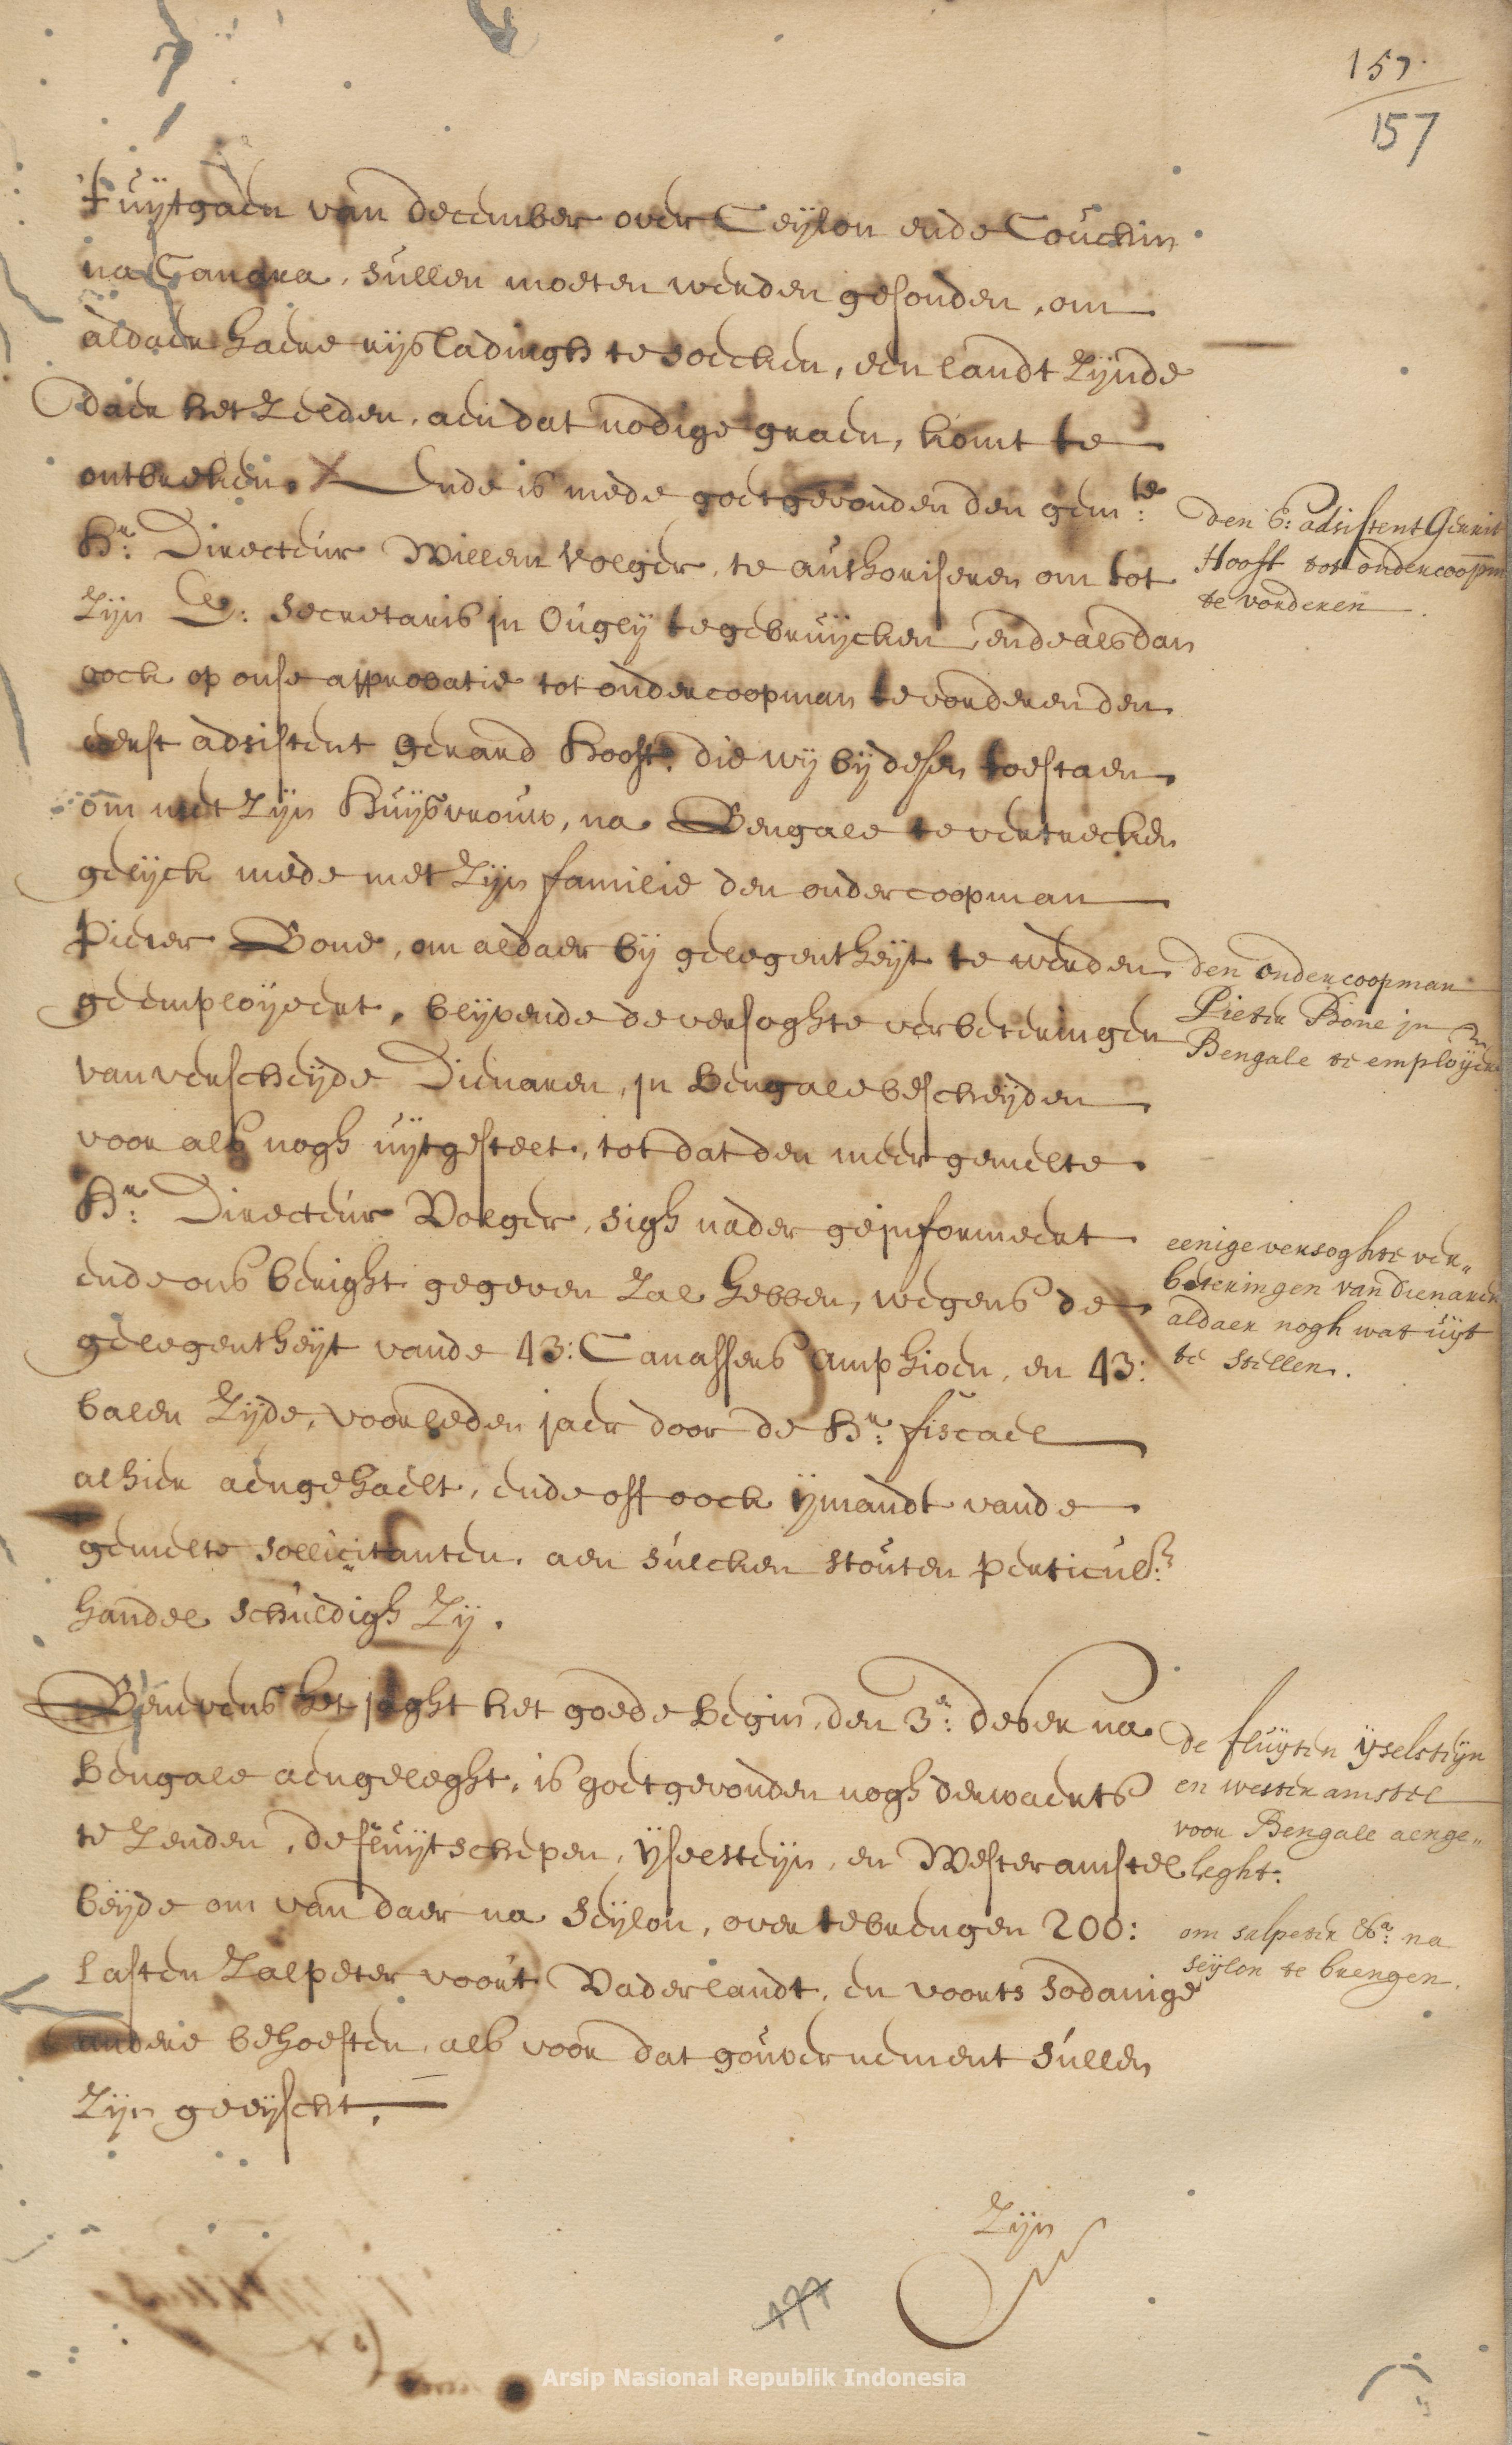 157.
157
t' uijtgaen van december over Ceijlon ende Couchin
na Canara, sullen moeten werden gesonden, om
aldaer haere rijs ladingh te soecken, een landt zijnde
daer het zelden, aen dat nodige graen, komt te
ontbreken. Ende is mede goetgevonden den gem:te
Hr: Directeur Willem Volger, te authoriseren om tot
zijn E: Secretaris in Ougly te gebruijcken, ende alsdan
oock op onse approbatie tot ondercoopman te vorderen den
eerst adsistent Gerard Hooft, die wij bij desen toestaen
om met zijn huijsvrouw, na Bengale te vertrecken
gelijck mede met zijn familie den ondercoopman
Pieter Bone, om aldaer bij gelegentheijt te werden
geemploijeert, blijvende de versoghte verbeteringen
van verscheijde Dienaren, in bengale bescheijden
voor als nogh uijtgestelt, tot dat den meergemelte
Hr: Directeur Volger, sigh nader geinformeert
ende ons beright gegeven zal hebben, wegens de
gelegentheijt vande 43: Canassers amphioen, en 43:
balen zijde, voorleden jaer door de Hr: fiscael
alhier aengehaelt, ende off oock ijmandt vande
gemelte sollicitanten, aen sulcken stouten perticul:n
handel schuldigh zij.
Benevens het jaght het goede begin, den 3e: deser na
bengale aengeleght, is goetgevonden nogh derwaerts
te zenden, de fluijtschepen, ijselsteijn, en Westeramstel
beijde om van daer na Seijlon, over te brengen 200:
lasten zalpeter voor 't Vaderlandt, en voorts sodanige
andere behoeften, als voor dat gouvernement sullen
zijn geeijscht.
Zijn
177
den E: adsistent Gerrit
Hooft tot ondercoopm
te vorderen
den ondercoopman
Pieter Bone in
Bengale te emploijeren
eenige versoghte ver-
beteringen van dienaren
aldaer nogh wat uijt
te stellen.
de fluijten ijselsteijn
en westeramstel
voor Bengale aenge-
leght.
om salpeter &a: na
seijlon te brengen.
Arsip Nasional Republik Indonesia